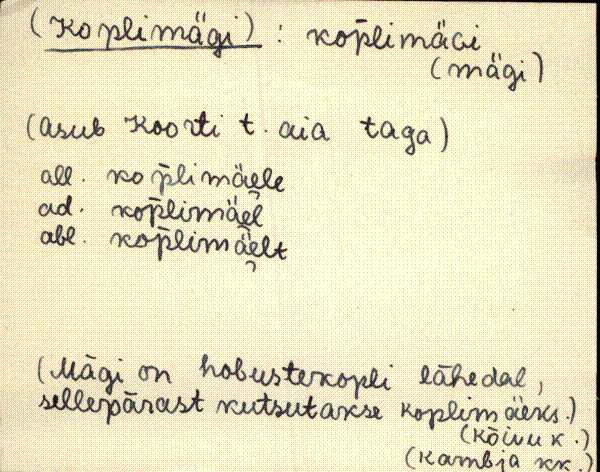 (Koplimägi) : kop̄limäɢi
(mägi)
(asub Koorti t. aia taga)
all. kop̄limäele
ad. kop̄limäel
abl. kop̄limäelt
(Mägi on hobustekopli lähedal,
sellepärast kutsutakse koplimäeks.)
(Kõivu k.)
(Kambja kk.)